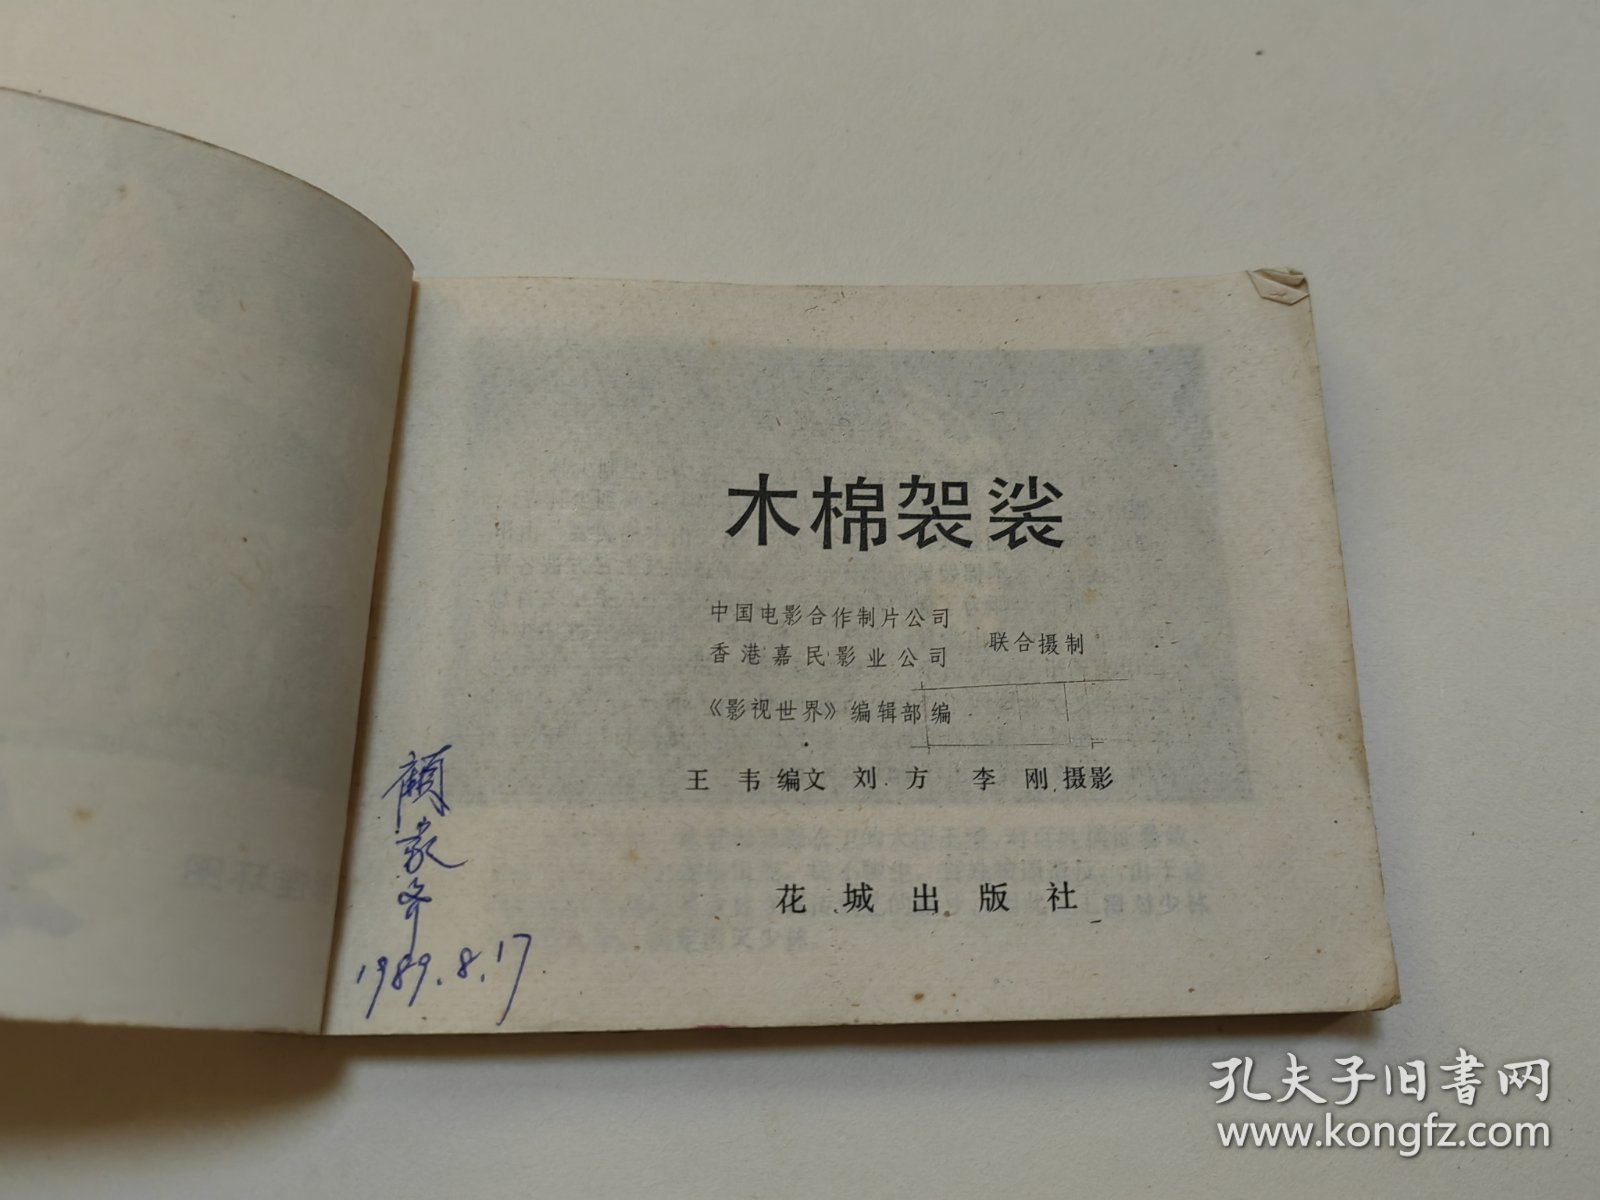 木棉袈裟
中国电影合作制片公司
香港嘉民影业公司
联合摄制
《影视世界》编辑部编
王 韦 编文 刘 方 李 刚 摄影
花城出版社
顾家
1989.8.17
孔夫子旧书网
www.kongfz.com